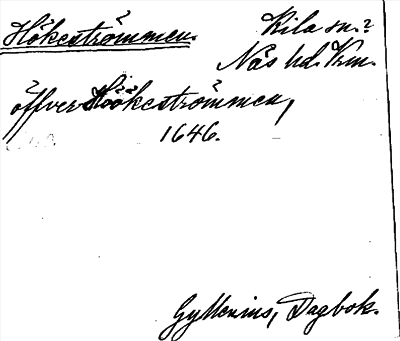 Hökeströmmen.
Kila sn.?
Näs hd. Vrm.
öffver Höökeströmmen,
1646.
Gyllenius, Dagbok.